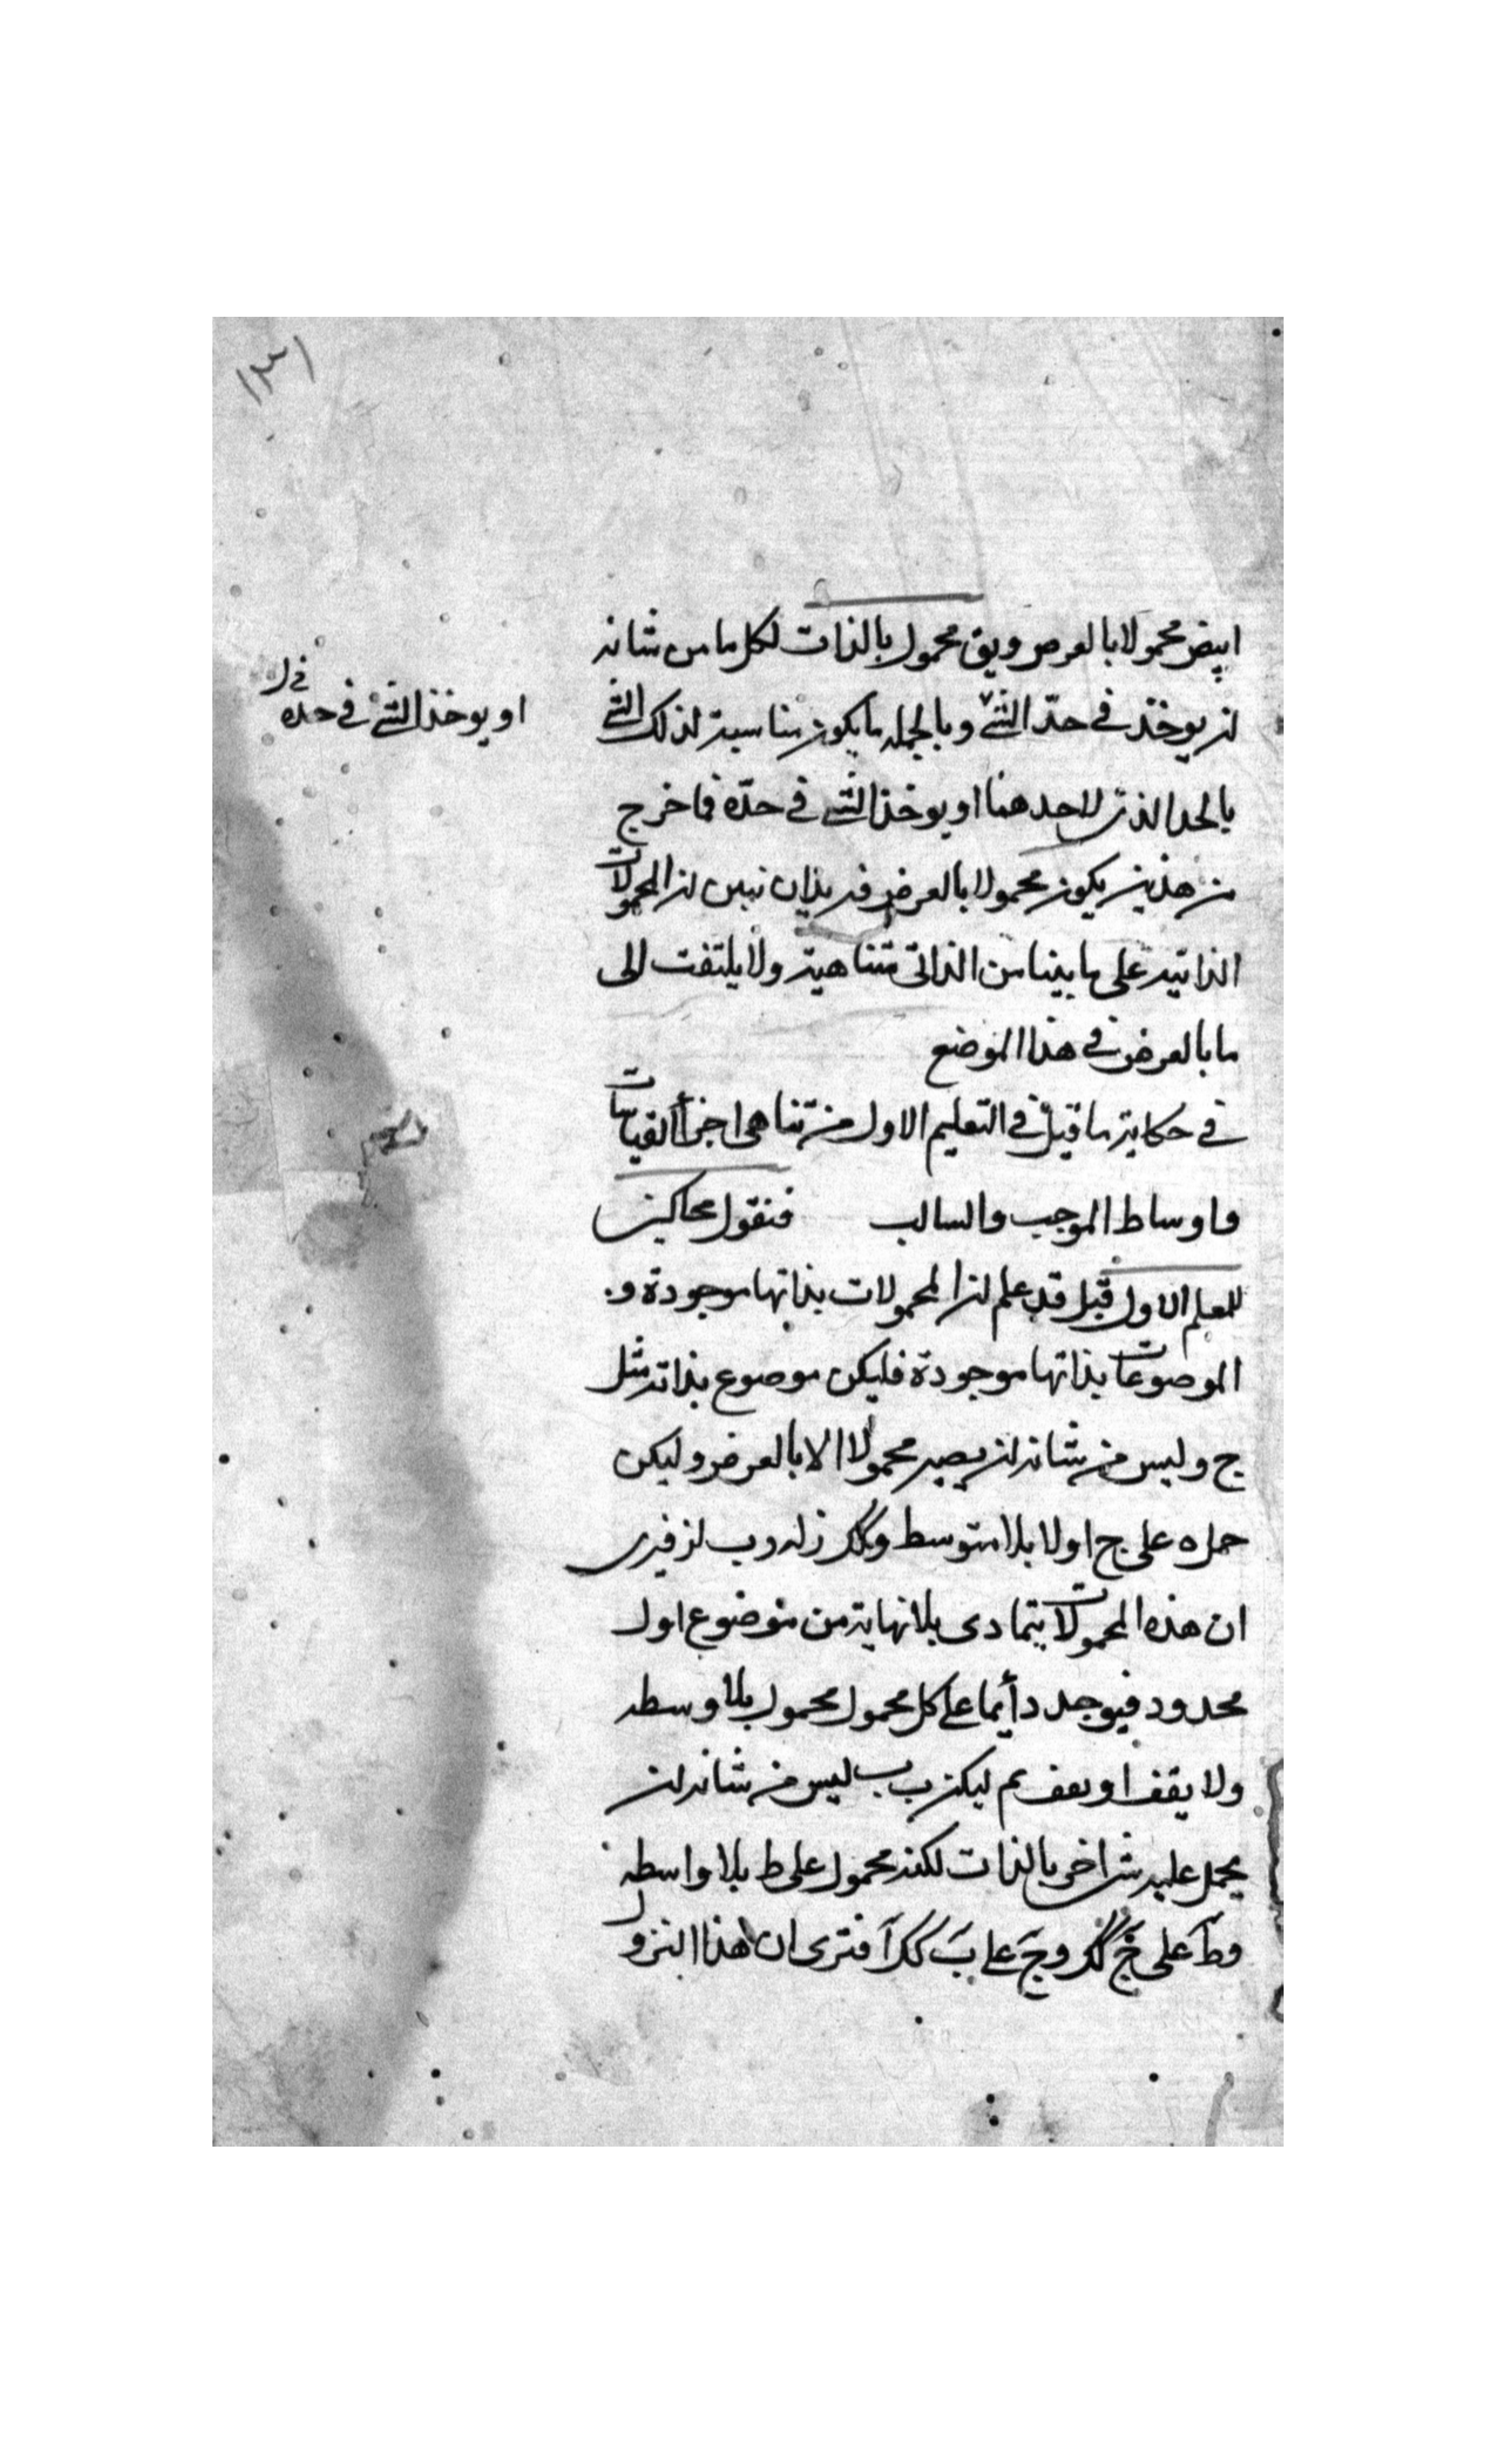 ابيض محمولا بالعرض ويق محمول بالذات لكل ما من شانه
ان يوخذ في حدّ الشئ وبالجمله ما يكون مناسبة لذلك الشئ
او يوخذ الشئ في حده
بالحد الذى لاحدهما او يوخذ الشئ في حدّه فما خرج
من هذين يكون محمولا بالعرض فنريد ان نبين ان المحمولات
الذاتية على ما بينا من الذاتى متناهية ولا يلتفت الى
ما بالعرض في هذا الموضع
في حكاية ما قيل في التعليم الاول من تناهى اجزأ القياسات
واوساط الموجب والسالب فنقول محاكين
للمعلم الاول قبل قد علم ان المحمولات بذاتها موجودة و
الموصوعات بذاتها موجودة فليكن موصوع بذاته مثل
ج وليس من شانه ان يصير محمولا الا بالعرض وليكن
حمل ه على ج اولا بلا متوسط وكك ز له وب لز فيرى
ان هذه المحمولات يتمادى بلا نهاية من موضوع اول
محدود فيوجد دأيما على كل محمول محمول بلا وسطه
ولا يقف او يقف ثم ليكن ب ليس من شانه ان
يحمل عليه شى اخر بالذات لكنه محمول على ط بلا واسطه
وط على ج كك وج على ب كك آفترى ان هذا النزول